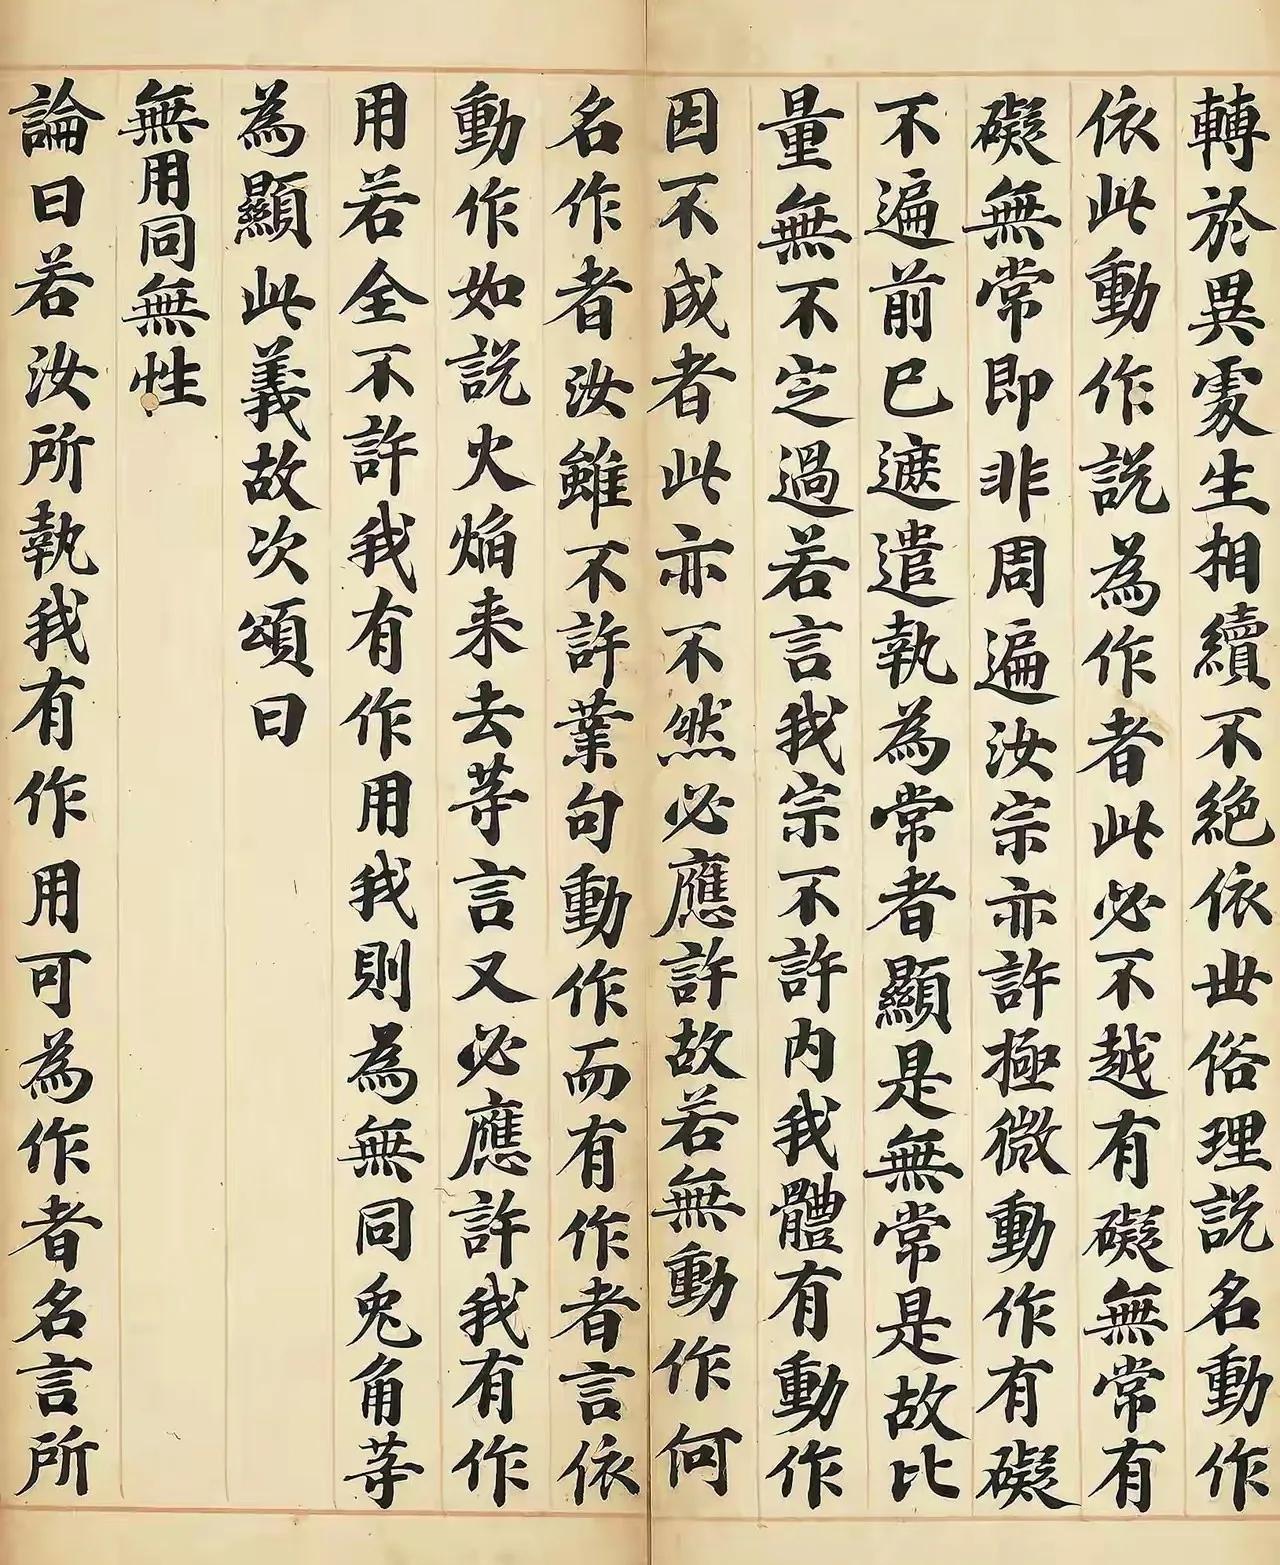 轉於異處生相續不絕依世俗理說名動作
依此動作說為作者此必不越有礙無常有
礙無常即非周遍汝宗亦許極微動作有礙
不遍前已遮遣執為常者顯是無常是故比
量無不定過若言我宗不許內我體有動作
因不成者此亦不然必應許故若無動作何
名作者汝雖不許業句動作而有作者言依
動作如說火焰来去等言又必應許我有作
用若全不許我有作用我則為無同兎角等
為顯此義故次頌曰
無用同無性
論曰若汝所執我有作用可為作者名言所